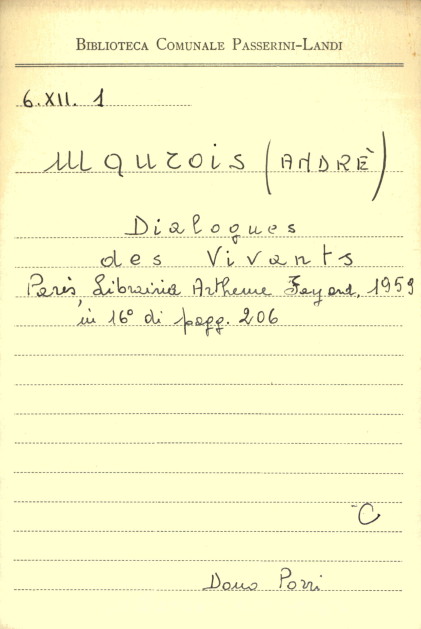 BIBLIOTECA COMUNALE PASSERINI-LANDI
6.XII. 1
Maurois (ANDRÈ)
Dialogues
des Vivants
Paris, Librairia Artheme Fayard, 1959
in 16° di pagg. 206
C
Dono Porri